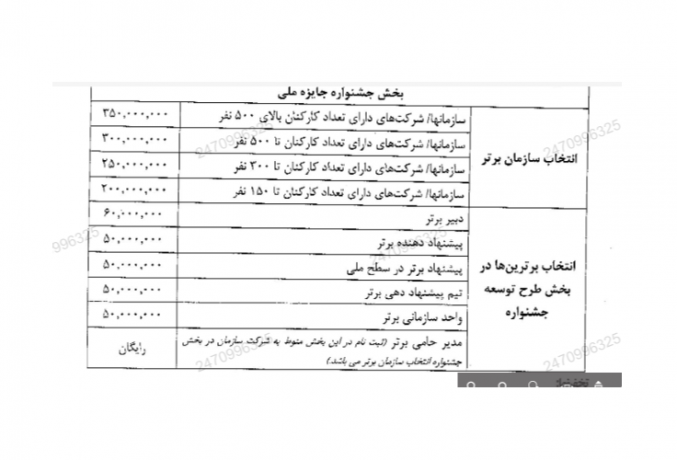 بخش جشنواره جایزه ملی
انتخاب سازمان برتر
سازمانها/ شرکت‌های دارای تعداد کارکنان بالای ۵۰۰ نفر
۳۵۰,۰۰۰,۰۰۰
سازمانها/ شرکت‌های دارای تعداد کارکنان تا ۵۰۰ نفر
۳۰۰,۰۰۰,۰۰۰
سازمانها/ شرکت‌های دارای تعداد کارکنان تا ۳۰۰ نفر
۲۵۰,۰۰۰,۰۰۰
سازمانها/ شرکت‌های دارای تعداد کارکنان تا ۱۵۰ نفر
۲۰۰,۰۰۰,۰۰۰
انتخاب برترین‌ها در
بخش طرح توسعه
جشنواره
دبیر برتر
۶۰,۰۰۰,۰۰۰
پیشنهاد دهنده برتر
۵۰,۰۰۰,۰۰۰
پیشنهاد برتر در سطح ملی
۵۰,۰۰۰,۰۰۰
تیم پیشنهاد دهی برتر
۵۰,۰۰۰,۰۰۰
واحد سازمانی برتر
۵۰,۰۰۰,۰۰۰
مدیر حامی برتر (ثبت نام در این بخش منوط به شرکت سازمان در بخش
جشنواره انتخاب سازمان برتر می باشد.)
رایگان
2470996325
2470996325
996325
2470996325
2470996325